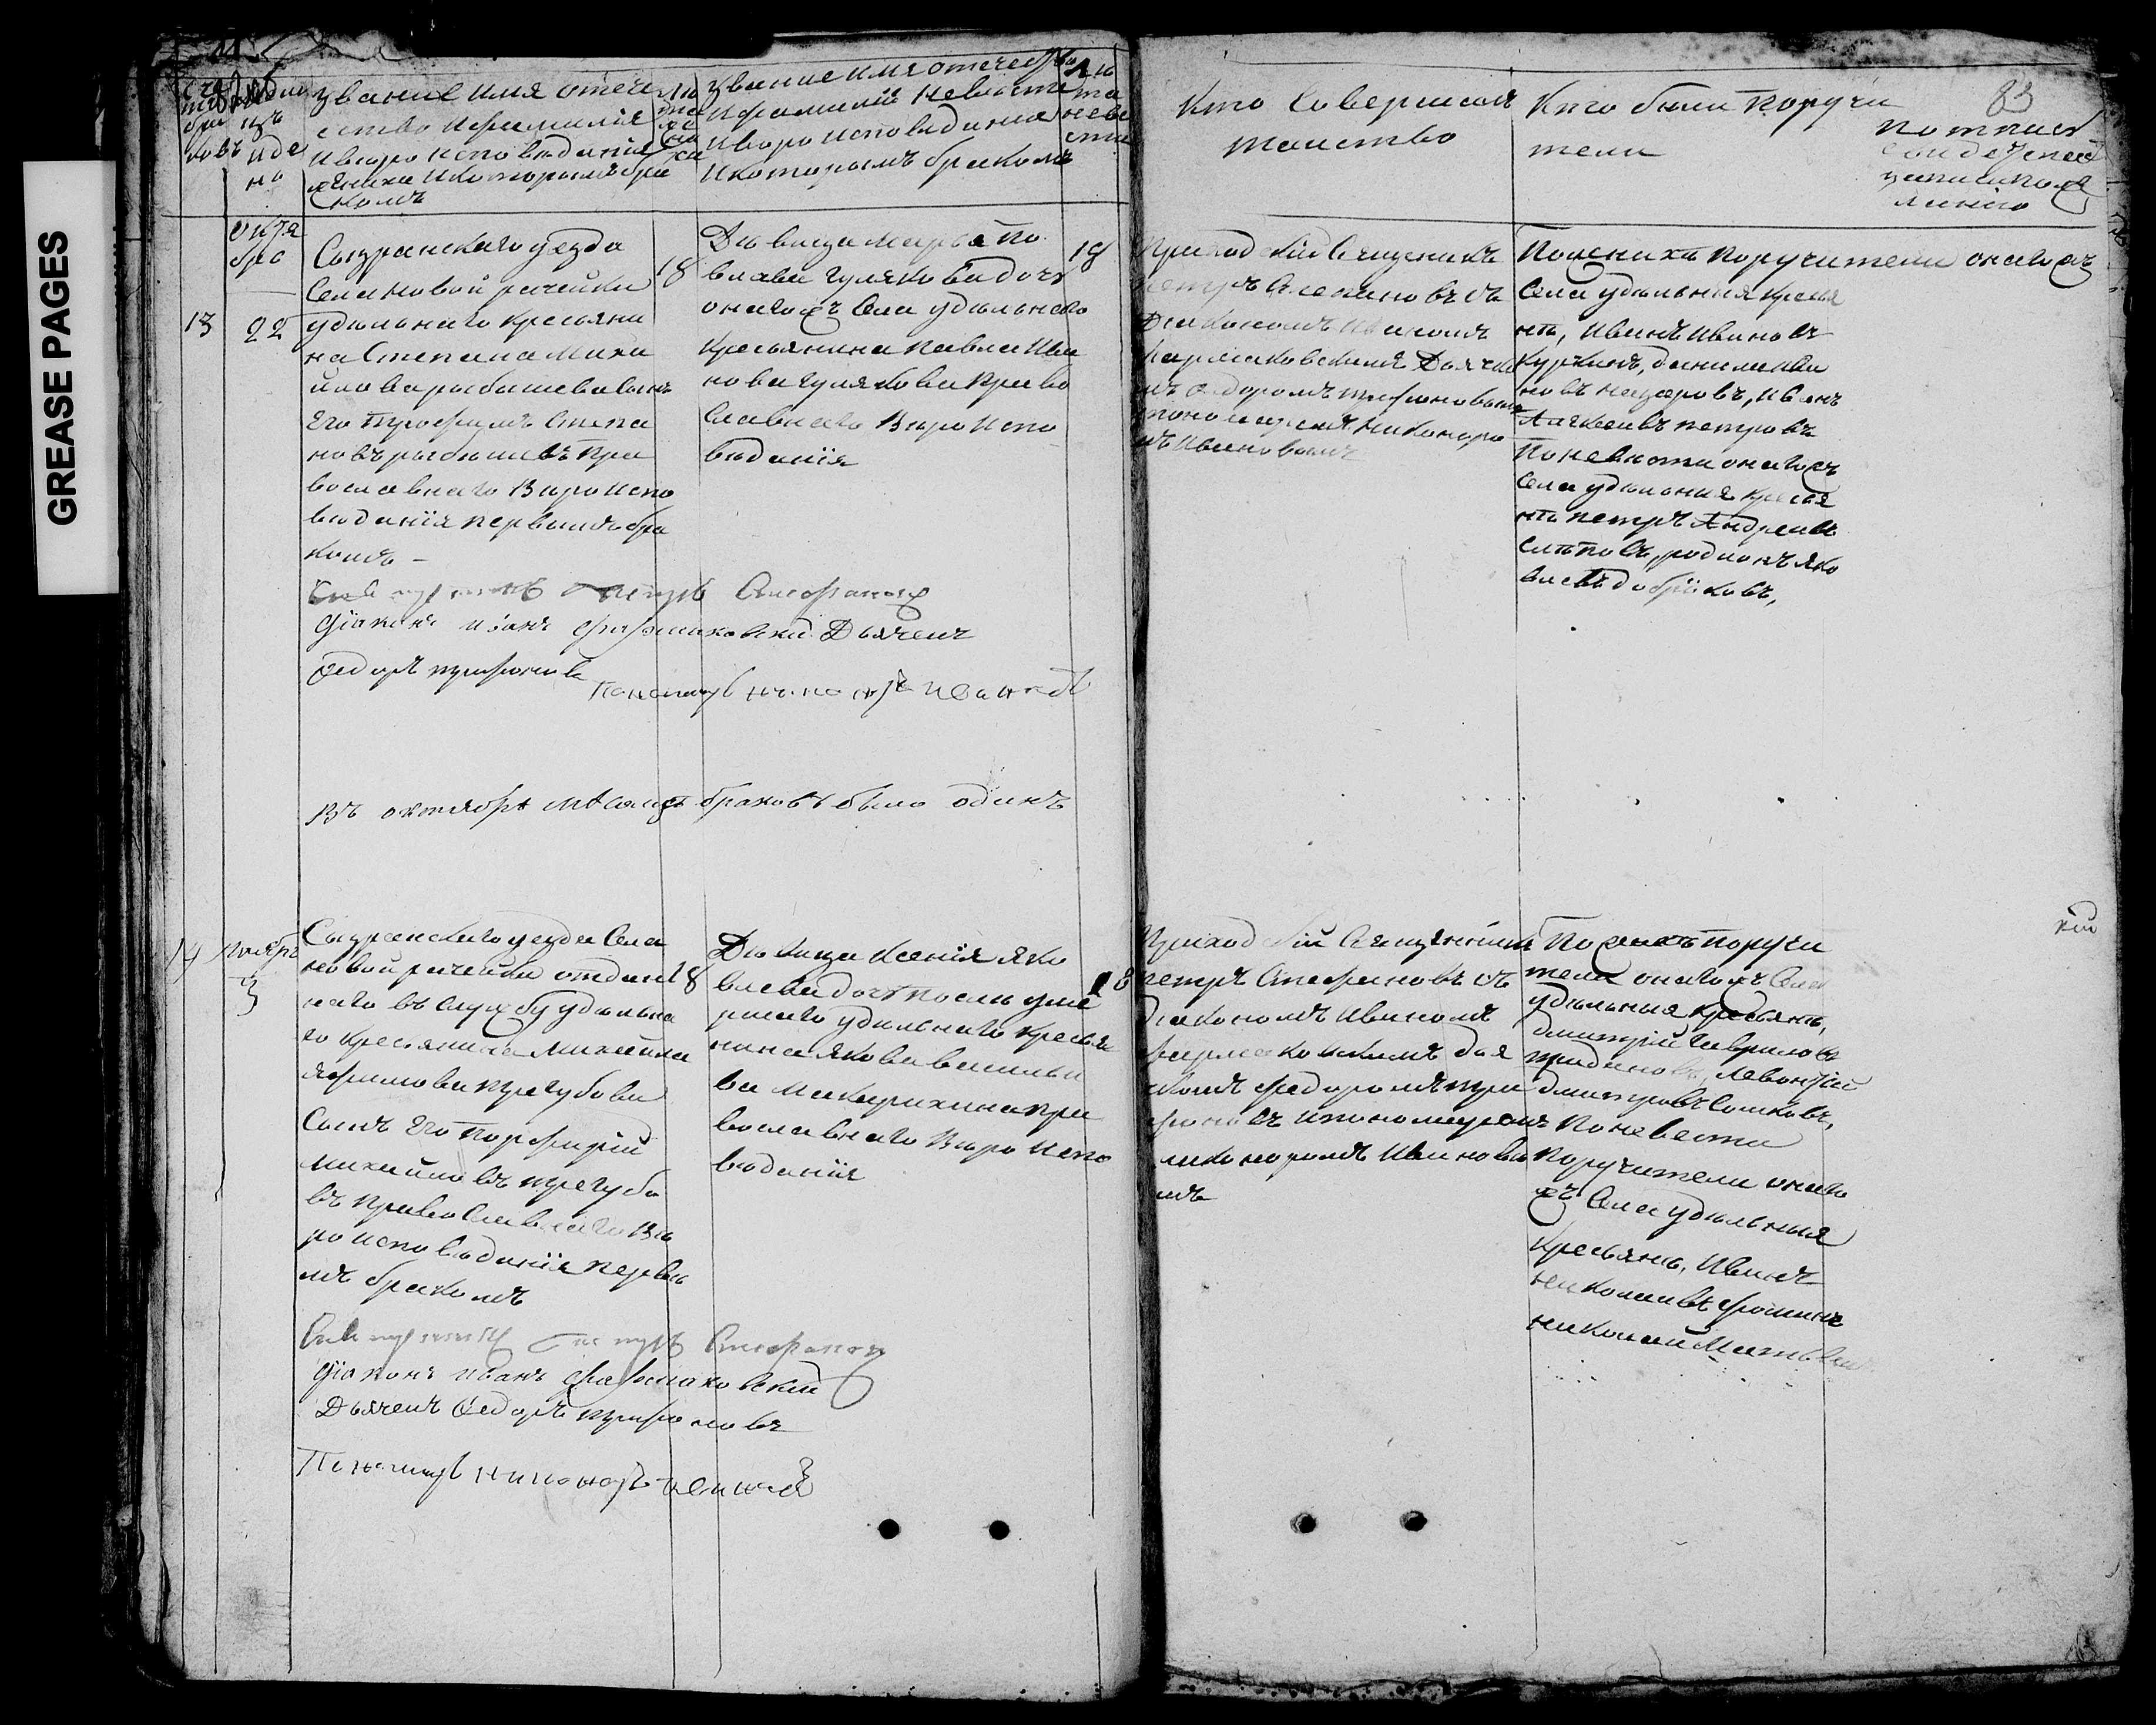 GREASE PAGES
83
звание имя отече
ство и фамилия
и веро исповедания
жениха и которым бра
ком
звание имя отечество
и фамилия невесты
и веро исповедания
и которымъ бракомъ
Кто совершалъ
таинство
Кто были поручи
тели
октя
бра
13
22
Сызранскаго уезда
села новой рачейки
удельнаго крестьяни
на Степана Михай
лова рыбашева сынъ
его Трофимъ Степа
новъ рыбашевъ пра
вославнаго веро испо
веданія первымъ бра
комъ
18
Девица Марья па
влова гулякова дочь
онагожъ села удельнаго
крестьянина павла Ива
нова гулякова право
славнаго веро испо
веданія
18
Приходскій Священникъ
петръ Стефановъ съ
Діякономъ Иваномъ
Фармаковскимъ Дьячко
мъ федоромъ трифоновымъ
пономаремъ Никоноро
мъ Ивановымъ
По женихе поручители онагожъ
села удельныя крестья
не, Иванъ Ивановъ
Куркинъ, данила Ива
новъ назаровъ, Иванъ
петровъ
По невести онагожъ
села удельныя крестья
не петръ Андреевъ
слеповъ, родионъ яко
влевъ добряковъ,
Священникъ петръ Стефановъ
Діяконъ иванъ фармаковскій Дьячекъ
федоръ трифоновъ
Пономарь никоноръ ивановъ
Въ октябре месяце браковъ было одинъ
14
ноябрь
3
Сызранскаго уезда села
новой рачейки отдан
наго въ службу удельна
го крестьянина Михайла
ефимова трегубова
Сынъ его порфирій
Михайловъ трегубо
въ православнаго ве
ро исповеданія первы
мъ бракомъ
18
Девица Ксенія яко
влева дочь после уме
ршаго удельнаго крестья
нина якова василье
ва макурихина пра
вославнаго веро испо
веданія
18
Приходскій Священникъ
петръ Стефановъ съ
діякономъ Иваномъ
фармаковскимъ дья
чкомъ федоромъ три
фоновъ и пономаремъ
никоноромъ Ивановы
мъ
По женихе поручи
тели онагожъ села
удельныя крестьяне,
дмитрій Гавриловъ
Левонтій
дмитріевъ Сошковъ,
По невести
поручители онаго
жъ села удельныя
крестьяне, Иванъ
николаевъ фоминъ
николай Матвеевъ
кій
Священникъ петръ Стефановъ
Діяконъ иванъ фармаковскій
Дьячекъ федоръ трифоновъ
Пономарь никоноръ ивановъ